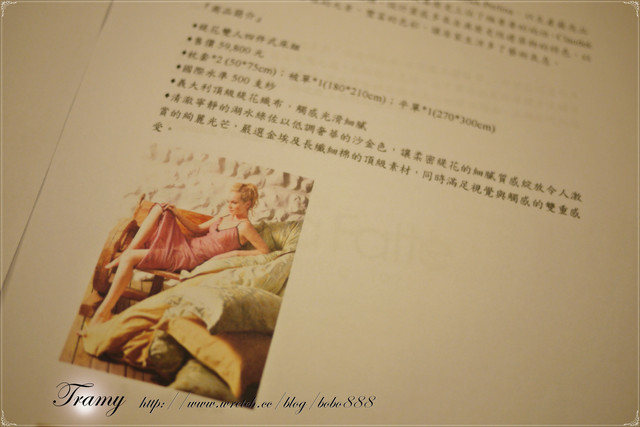 『商品簡介』
◆緹花雙人四件式床組
◆售價 59,800 元
◆枕套*2 (50*75cm)；被單*1(180*210cm)；平單*1(270*300cm)
◆國際水準 500 支紗
◆義大利頂級緹花織布，觸感光滑細膩
◆清澈寧靜的湖水綠佐以低調奢華的沙金色，讓柔密緹花的細膩質感綻放令人激
賞的絢麗光芒，嚴選金埃及長纖細棉的頂級素材，同時滿足視覺與觸感的雙重感
受。
Tramy http://www.wretch.cc/blog/bobo888